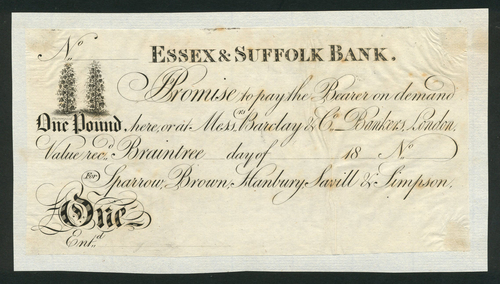 No
ESSEX & SUFFOLK BANK.
Promise to pay the Bearer on demand
One Pound, here, or at Messrs Barclay & Co. Bankers, London,
Value recd Braintree day of 18 No
For Sparrow, Brown, Hanbury, Savill & Simpson,
One
Entd